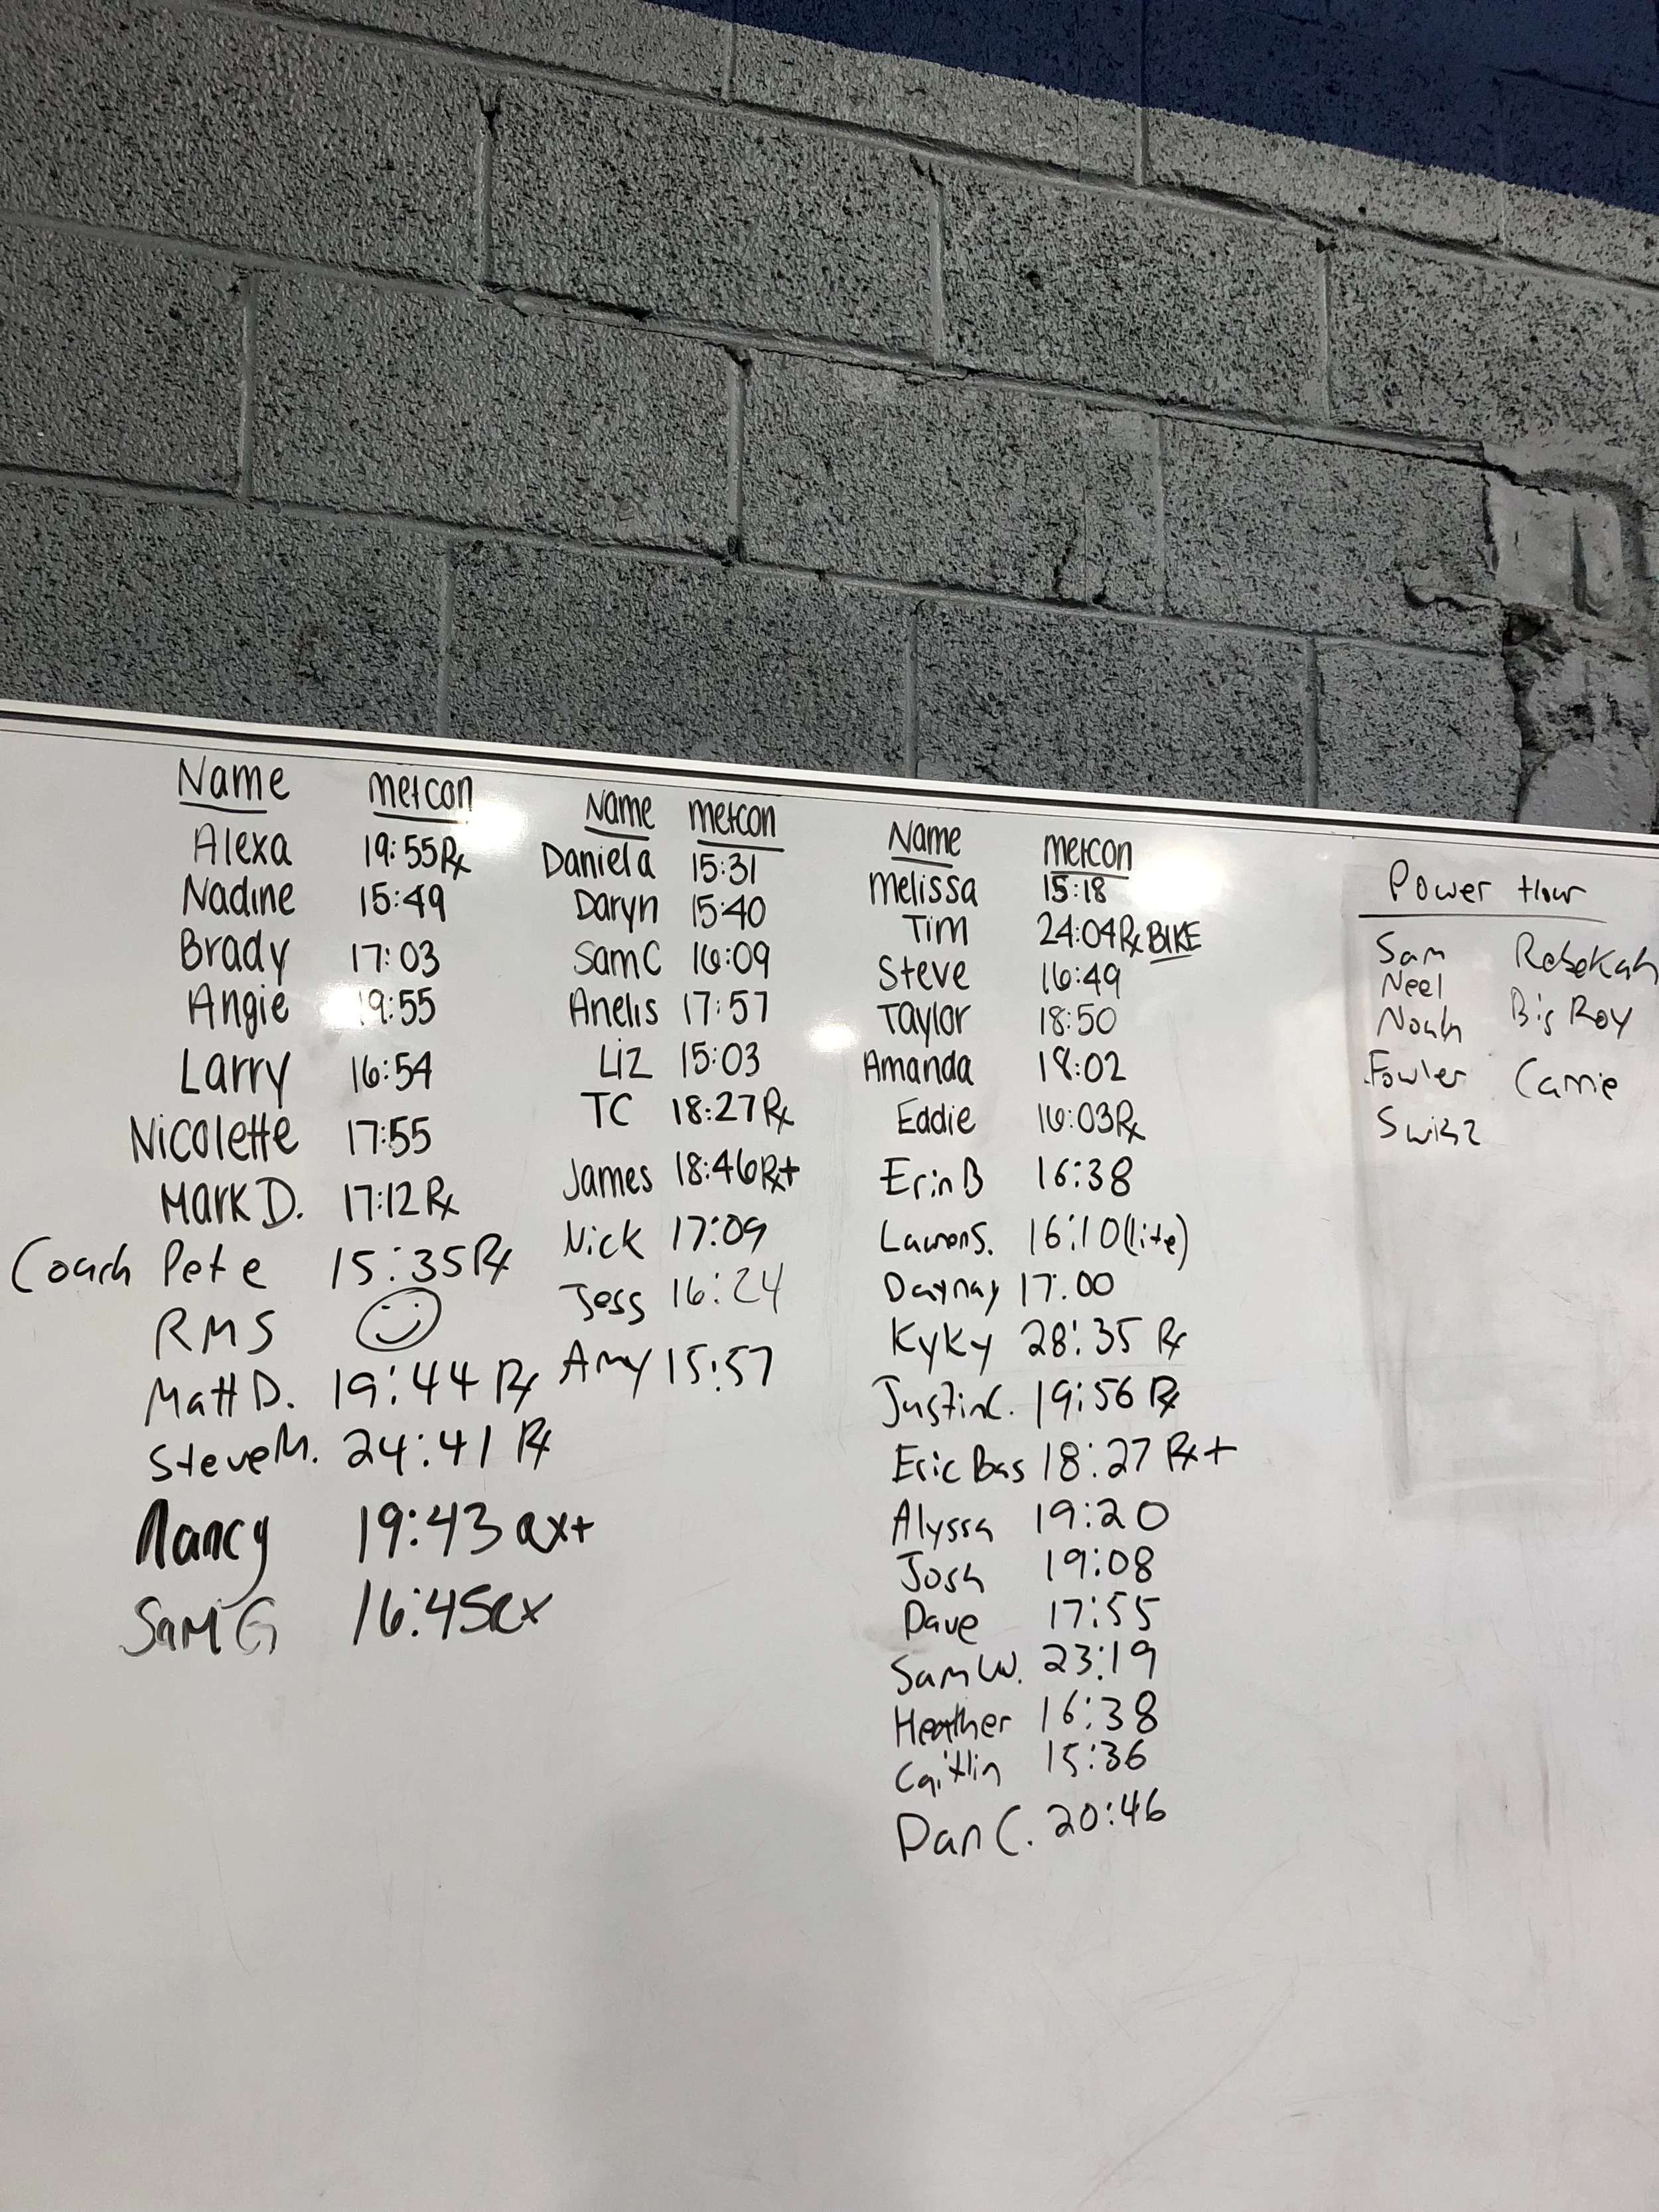 Name metcon
Alexa 19:55 Rx
Nadine 15:49
Brady 17:03
Angie 19:55
Larry 16:54
Nicolette 17:55
Mark D. 17:12 Rx
Coach Pete 15:35 Rx
RMS
Matt D. 19:44 Rx
Steve M. 24:41 Rx
Nancy 19:43 Rx+
Sam G 16:45 Rx
Name metcon
Daniela 15:31
Daryn 15:40
Sam C 16:09
Anelis 17:57
Liz 15:03
TC 18:27 Rx
James 18:46 Rx+
Nick 17:09
Jess 16:24
Amy 15:57
Name metcon
Melissa 15:18
Tim 24:04 Rx BIKE
Steve 16:49
Taylor 18:50
Amanda 18:02
Eddie 16:03 Rx
Erin B 16:38
Lauren S. 16:10 (lite)
Daynay 17:00
KyKy 28:35 Rx
Justin C. 19:56 Rx
Eric Bas 18:27 Rx+
Alyssa 19:20
Josh 19:08
Dave 17:55
Sam W. 23:19
Heather 16:38
Caitlin 15:36
Dan C. 20:46
Power Hour
Sam Rebekah
Neel
Noah Big Roy
Fowler Carrie